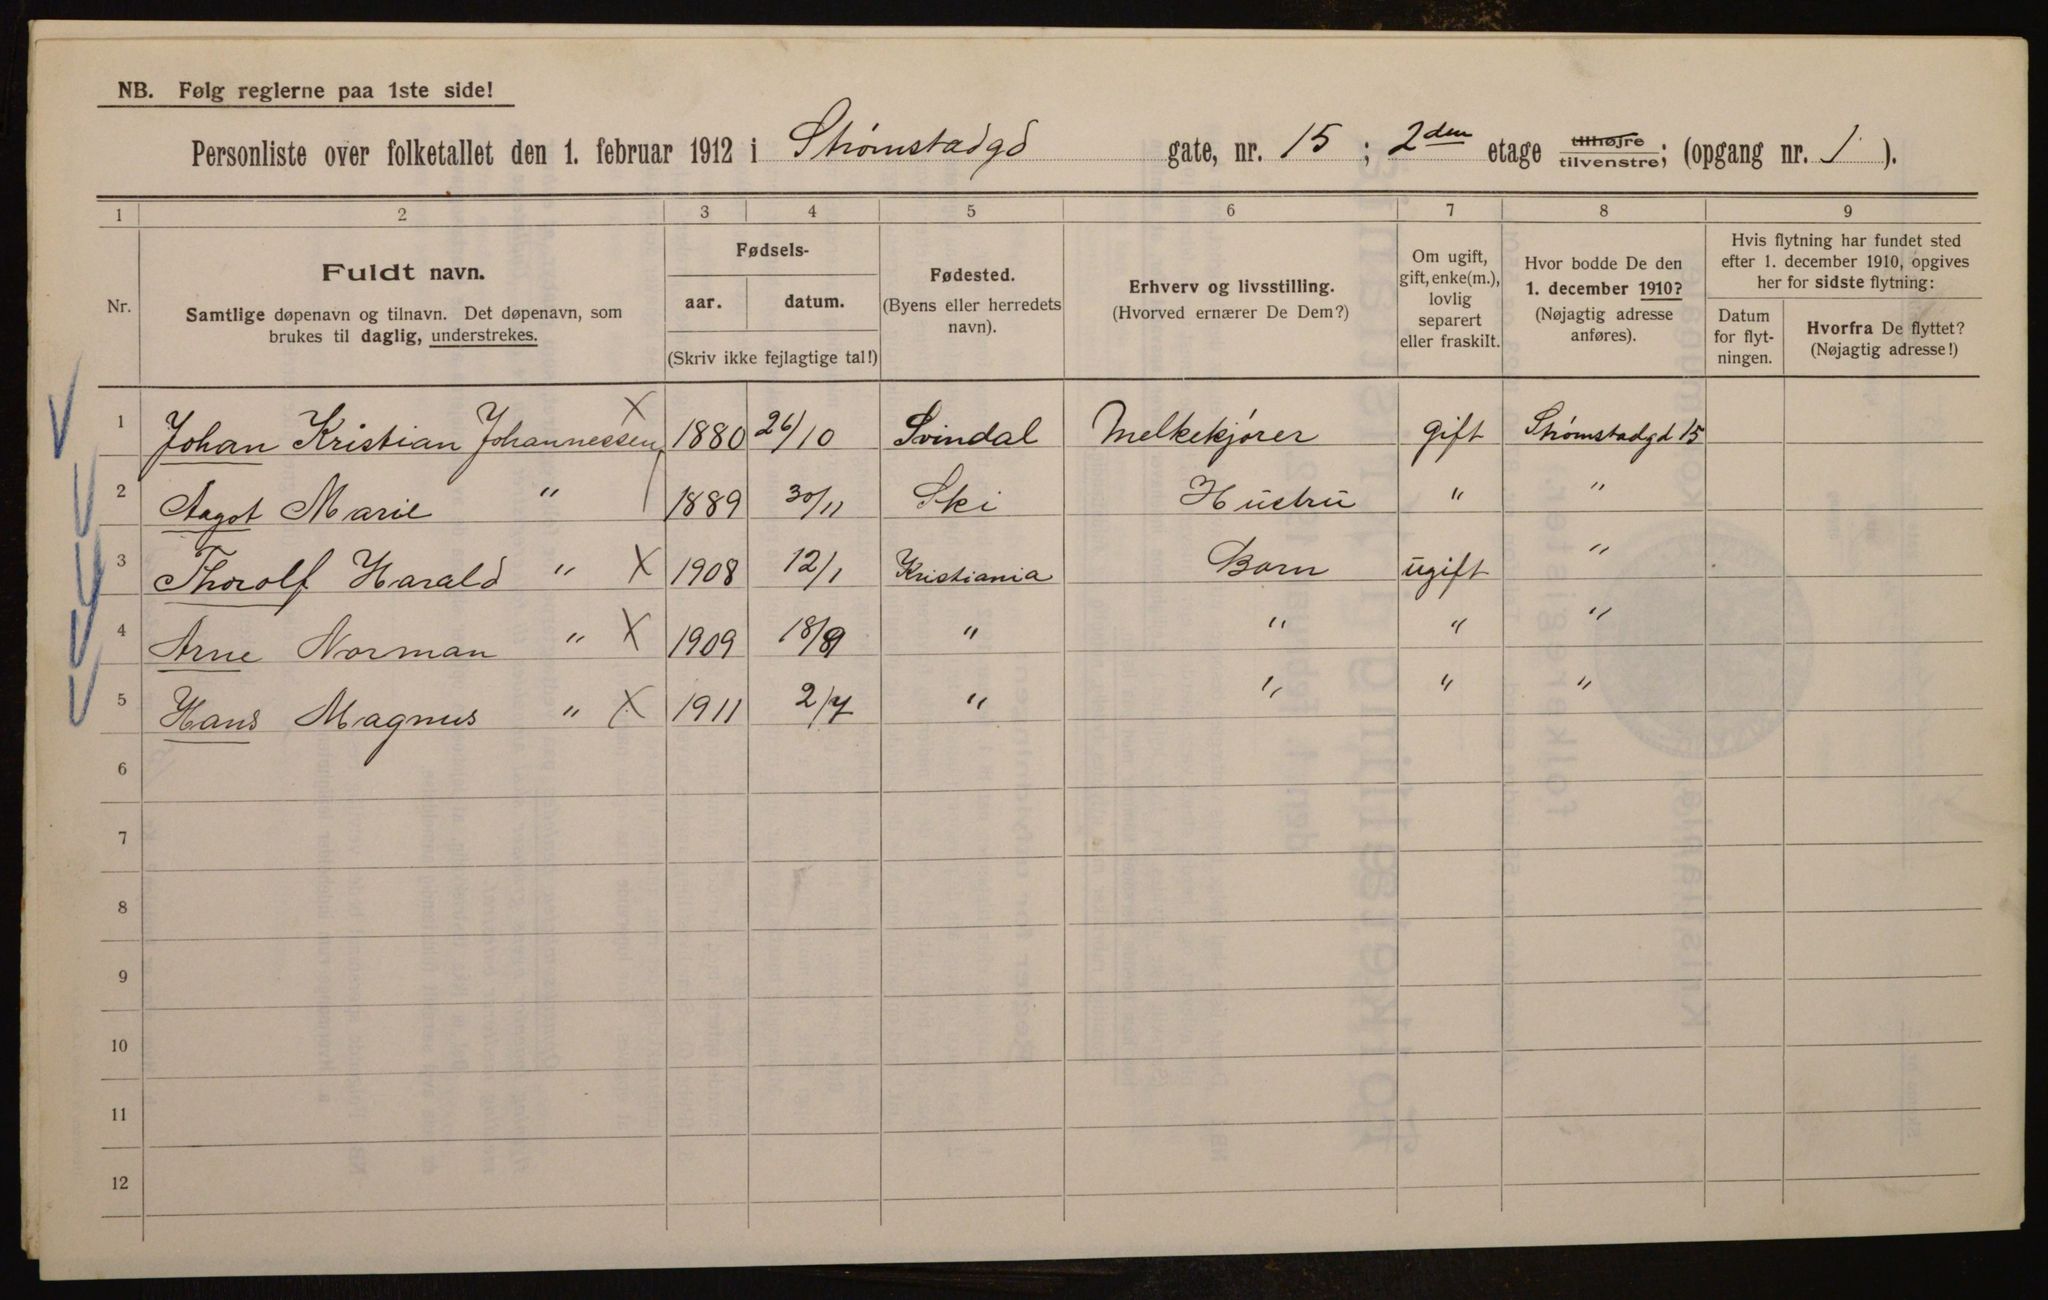 NB. Følg reglerne paa 1ste side!
Personliste over folketallet den 1. februar 1912 i Strømstadgd gate, nr. 15; 2den etage tilhøjre tilvenstre; (opgang nr. 1).
1 2 3 4 5 6 7 8 9
Nr.
Fuldt navn.
Samtlige døpenavn og tilnavn. Det døpenavn, som
brukes til daglig, understrekes.
Fødsels-
aar. datum.
(Skriv ikke fejlagtige tal!)
Fødested.
(Byens eller herredets
navn).
Erhverv og livsstilling.
(Hvorved ernærer De Dem?)
Om ugift,
gift, enke(m.),
lovlig
separert
eller fraskilt.
Hvor bodde De den
1. december 1910?
(Nøjagtig adresse
anføres).
Hvis flytning har fundet sted
efter 1. december 1910, opgives
her for sidste flytning:
Datum
for flyt-
ningen.
Hvorfra De flyttet?
(Nøjagtig adresse!)
1 Johan Kristian Johannessen X 1880 26/10 Svindal Melkekjører gift Strømstadgd 15
2 Aagot Marie " 1889 30/11 Ski Hustru " "
3 Thorolf Harald " X 1908 12/1 Kristiania Barn ugift "
4 Arne Norman " X 1909 18/9 " " " "
5 Hans Magnus " X 1911 2/7 " " " "
6
7
8
9
10
11
12